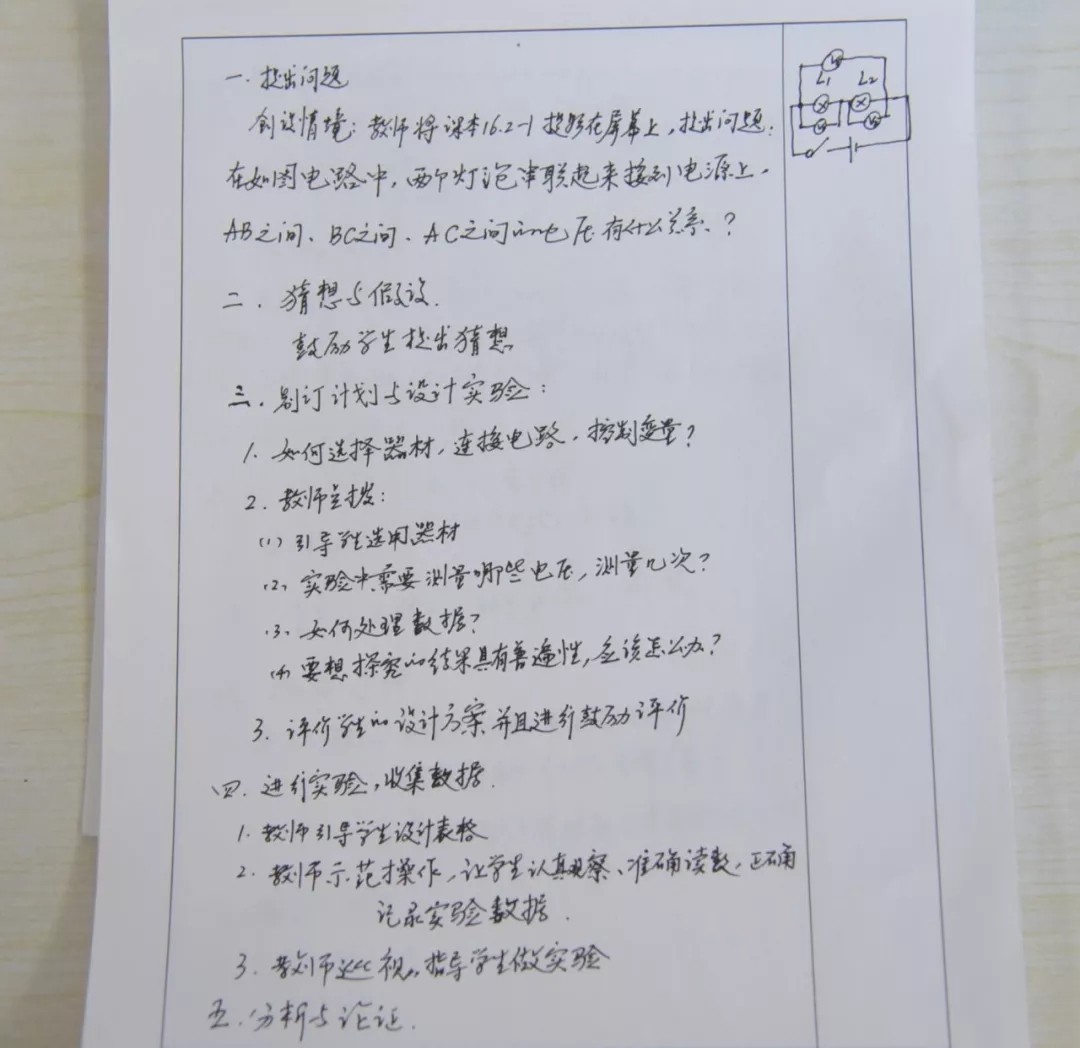 一. 提出问题
创设情境: 教师将课本16.2-1投影在屏幕上, 提出问题:
在如图电路中, 两个灯泡串联起来接到电源上,
AB之间、BC之间、AC之间的电压有什么关系?
二. 猜想与假设.
鼓励学生提出猜想
三. 制订计划与设计实验:
1. 如何选择器材, 连接电路, 控制变量?
2. 教师点拨:
(1) 引导学生选用器材
(2) 实验中需要测量哪些电压, 测量几次?
(3) 如何处理数据?
(4) 要想探究的结果具有普遍性, 应该怎么办?
3. 评价学生的设计方案并且进行鼓励评价
四. 进行实验, 收集数据.
1. 教师引导学生设计表格
2. 教师示范操作, 让学生认真观察、准确读数, 正确
记录实验数据.
3. 教师巡视, 指导学生做实验
五. 分析与论证.
V
L1 L2
V V